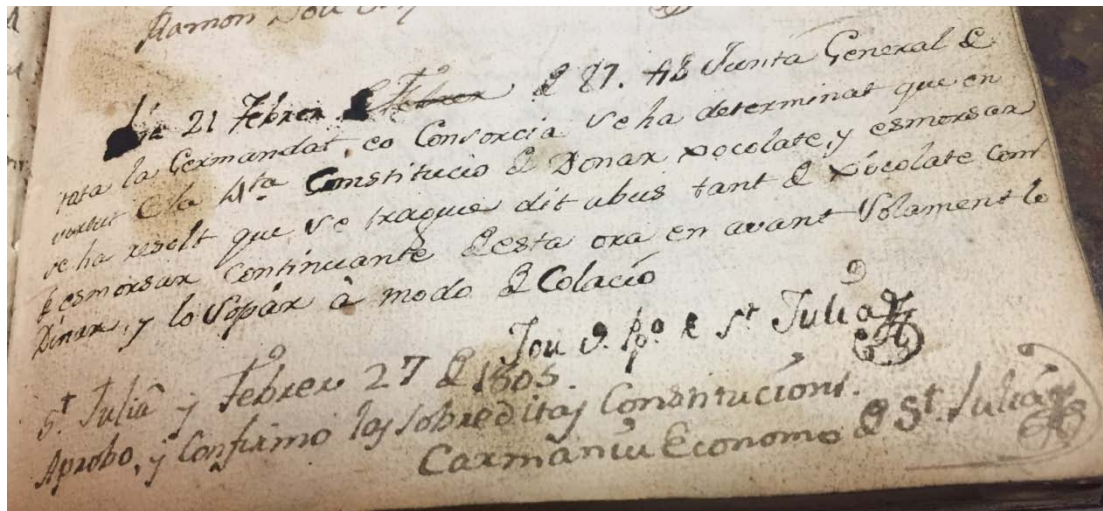 Ramon Jou
Dia 21 Febrer de Febrer de 87. ab Junta General de
tota la Germandat, eo Consorcia se ha determinat que en
virtut de la 4ta. Constitucio de Donar xocolate, y esmorsar
se ha resolt que se tragues dit abus tant de xocolate com
de esmorsar continuante desta ora en avant Solament lo
Dinar, y lo Sopár à modo de Colacio
Jou P. de St. Juliá
St. Juliá y Febrer 27 de 1805.
Aprobo, y Confirmo las sobreditas Constitucions.
Carmaniu Economo de St. Juliá